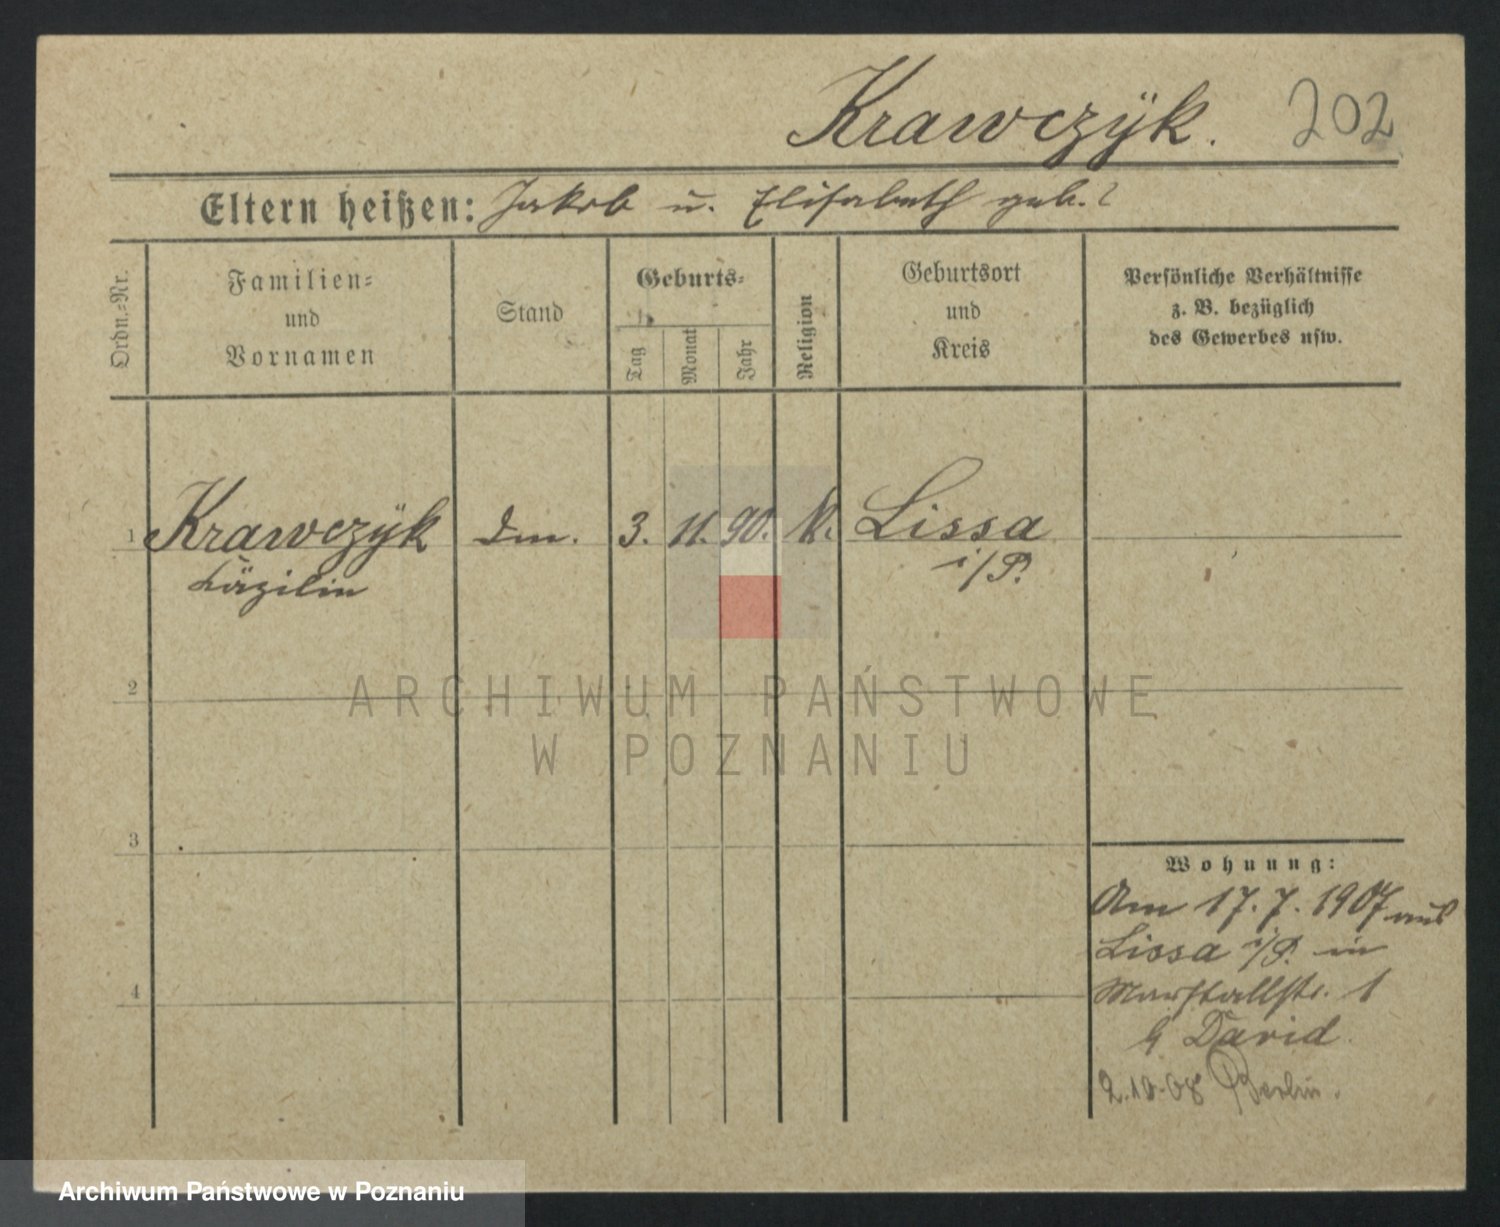 Krawczÿk. 202
Eltern heißen: Jakob u. Elisabeth geb. ?
Ordn.-Nr.
Familien-
und
Vornamen
Stand
Geburts-
Tag
Monat
Jahr
Religion
Geburtsort
und
Kreis
Persönliche Verhältnisse
z. B. bezüglich
des Gewerbes usw.
1 Krawczÿk 3. 11. 90. k. Lissa
Cäzilie i/P.
2
3
4
Wohnung:
Am 17. 7. 1907 aus
Lissa i/P. in
Marstallstr. 1
b David
2.10.08 Berlin.
ARCHIWUM PAŃSTWOWE
W POZNANIU
Archiwum Państwowe w Poznaniu